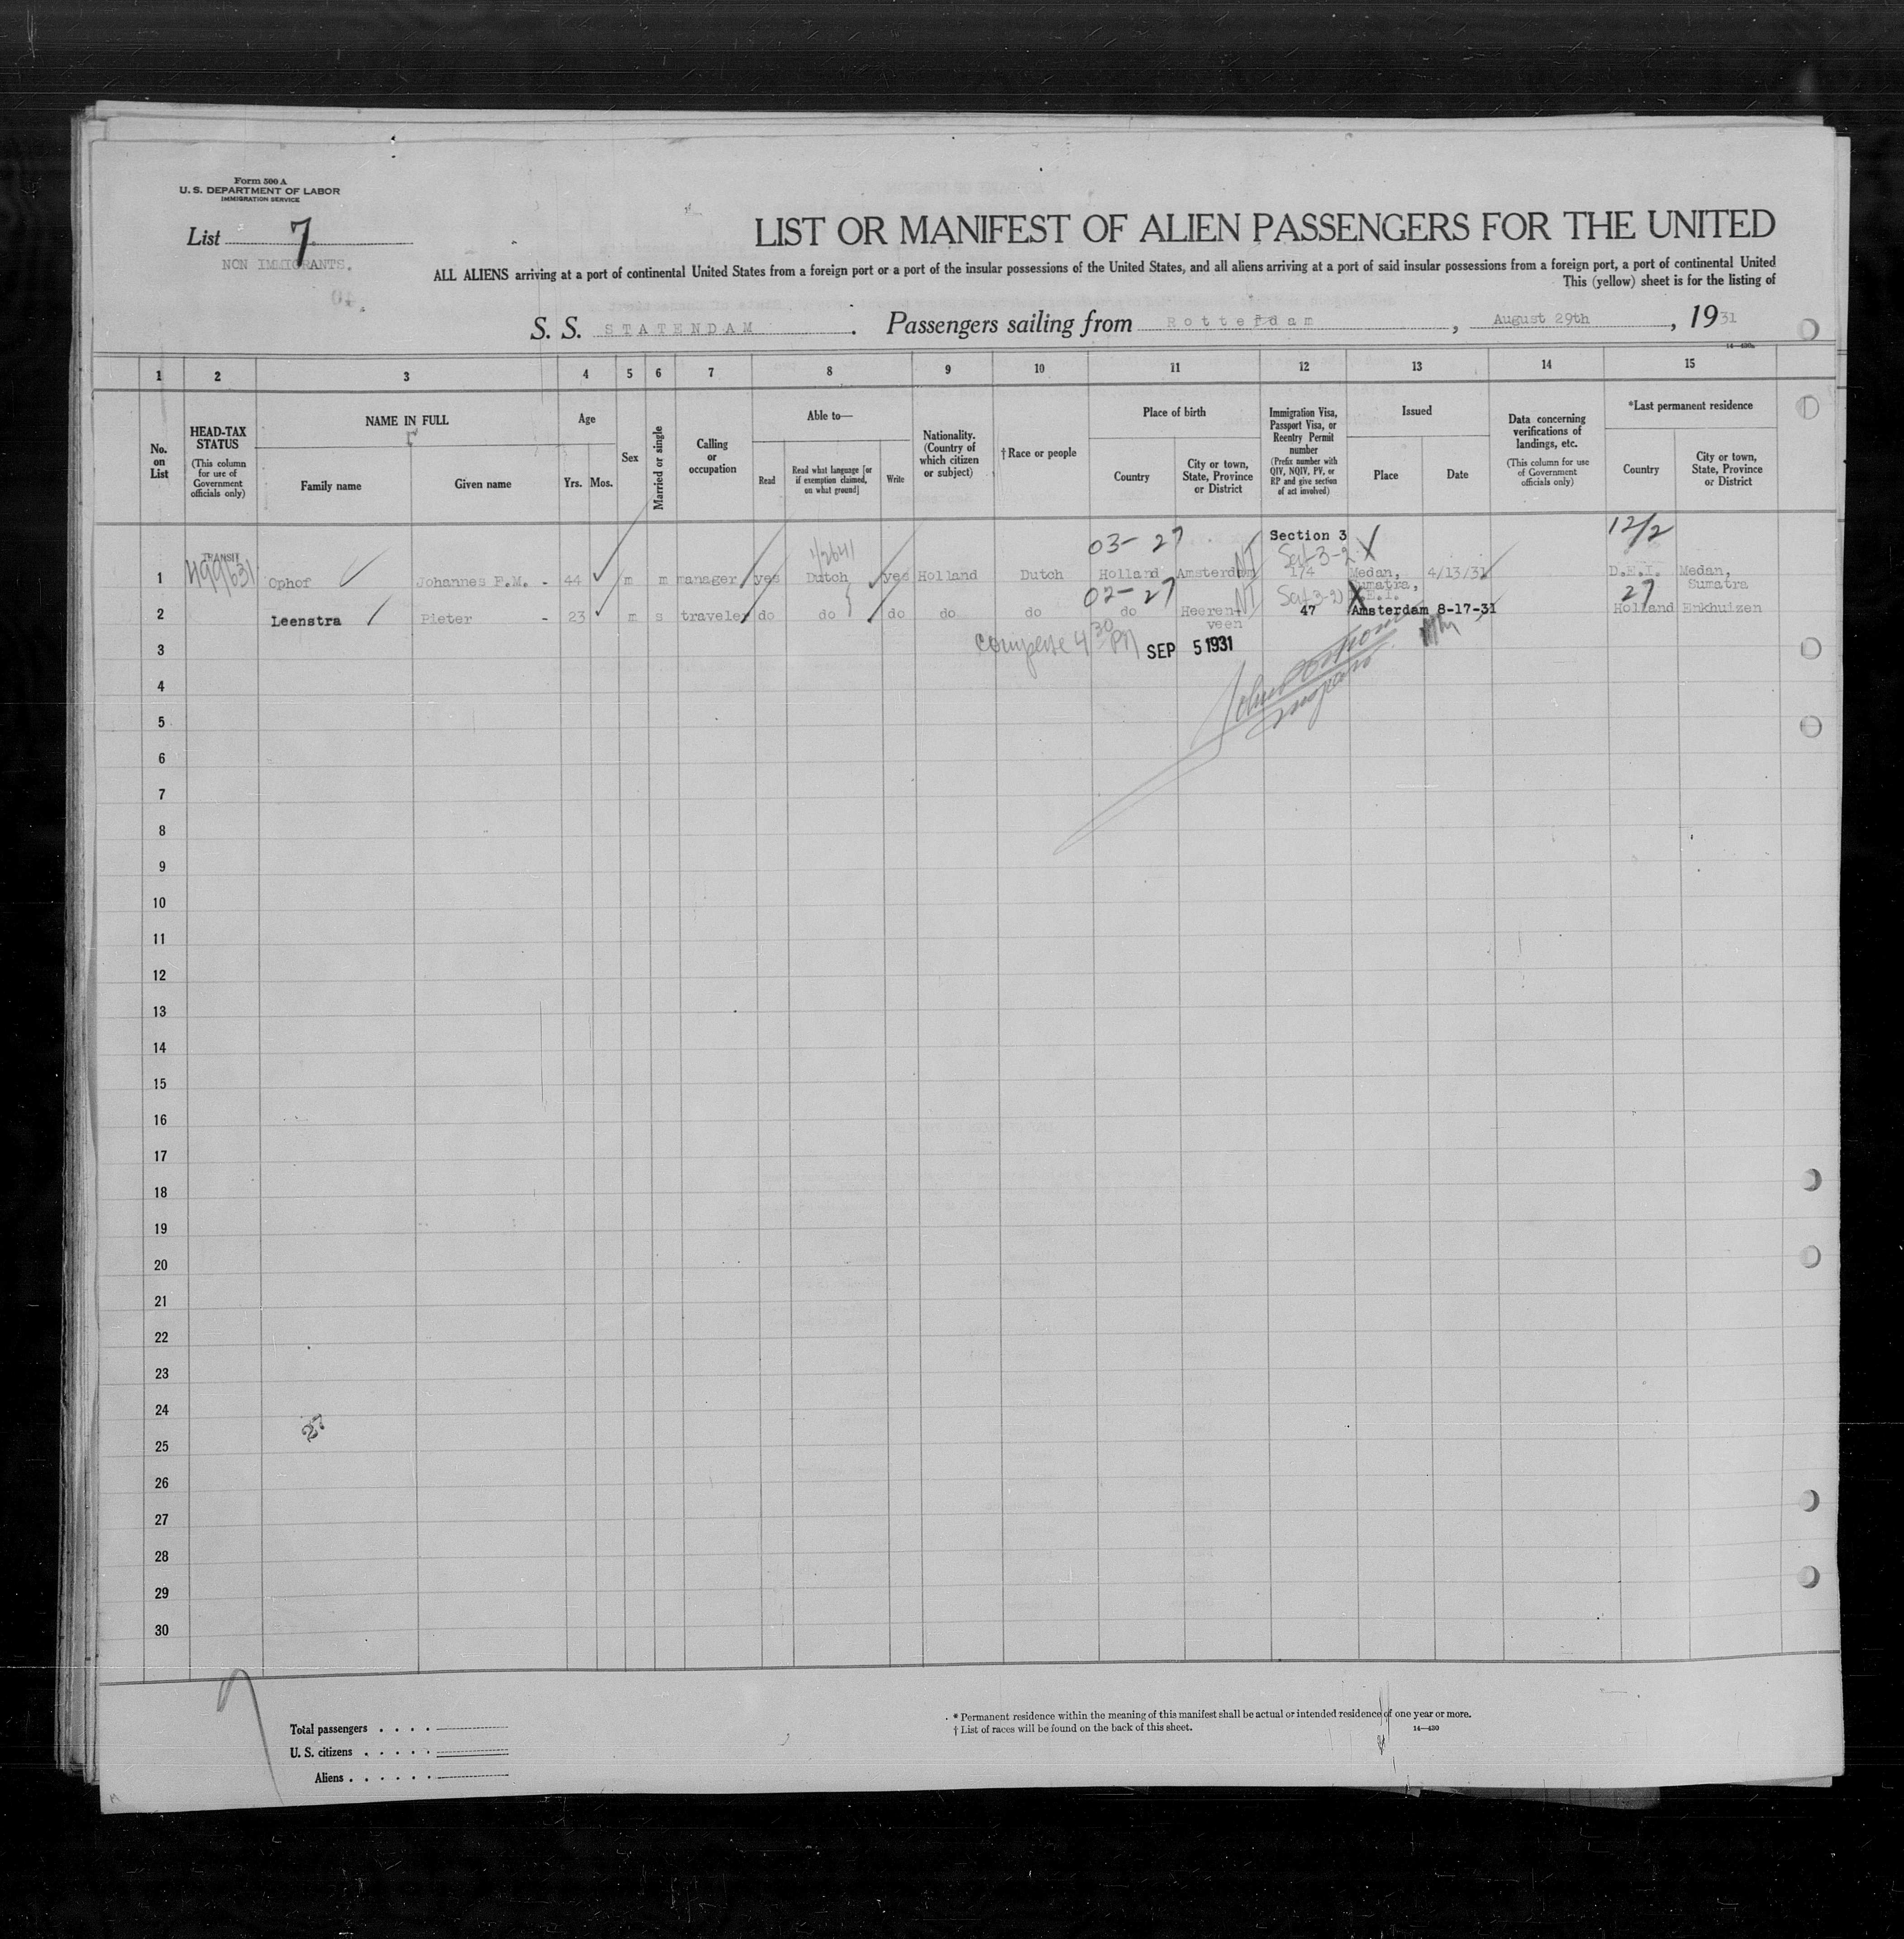 Form 500 A
U. S. DEPARTMENT OF LABOR
IMMIGRATION SERVICE
List 7
NON IMMIGRANTS.
LIST OR MANIFEST OF ALIEN PASSENGERS FOR THE UNITED
ALL ALIENS arriving at a port of continental United States from a foreign port or a port of the insular possessions of the United States, and all aliens arriving at a port of said insular possessions from a foreign port, a port of continental United
This (yellow) sheet is for the listing of
S. S. STATENDAM . Passengers sailing from Rotterdam , August 29th , 1931
1 2 3 4 5 6 7 8 9 10 11 12 13 14 15
No. on List
HEAD-TAX STATUS
(This column for use of Government officials only)
NAME IN FULL
Family name
Given name
Age
Yrs. Mos.
Sex
Married or single
Calling or occupation
Able to—
Read
Read what language [or if exemption claimed, on what ground]
Write
Nationality. (Country of which citizen or subject)
†Race or people
Place of birth
Country
City or town, State, Province or District
Immigration Visa, Passport Visa, or Reentry Permit number
(Prefix number with QIV, NQIV, PV, or RP and give section of act involved)
Issued
Place
Date
Data concerning verifications of landings, etc.
(This column for use of Government officials only)
*Last permanent residence
Country
City or town, State, Province or District
03- 27 Section 3 12/2
TRANSIT
1 499631 Ophof Johannes F.M. - 44 m m manager yes Dutch yes Holland Dutch Holland Amsterdam NT 174 Medan, Sumatra, D.E.I. 4/13/31 D.E.I. Medan, Sumatra
02- 27 Sect 3-2) 27
2 Leenstra Pieter - 23 m s traveler do do do do do do Heeren-veen NT 47 Amsterdam 8-17-31 Holland Enkhuizen
3 4 30 PM SEP 5 1931
4
5
6
7
8
9
10
11
12
13
14
15
16
17
18
19
20
21
22
23
24
27
25
26
27
28
29
30
Total passengers . . . .
U. S. citizens . . . . .
Aliens . . . . . .
* Permanent residence within the meaning of this manifest shall be actual or intended residence of one year or more.
† List of races will be found on the back of this sheet.
14—430